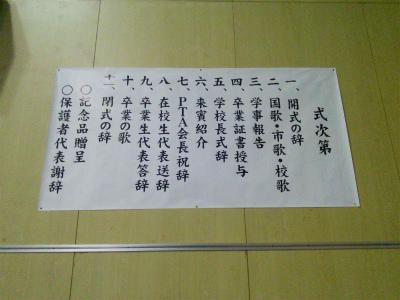 式次第
一、開式の辞
二、国歌・市歌・校歌
三、学事報告
四、卒業証書授与
五、学校長式辞
六、来賓紹介
七、PTA会長祝辞
八、在校生代表送辞
九、卒業生代表答辞
十、卒業の歌
十一、閉式の辞
○記念品贈呈
○保護者代表謝辞